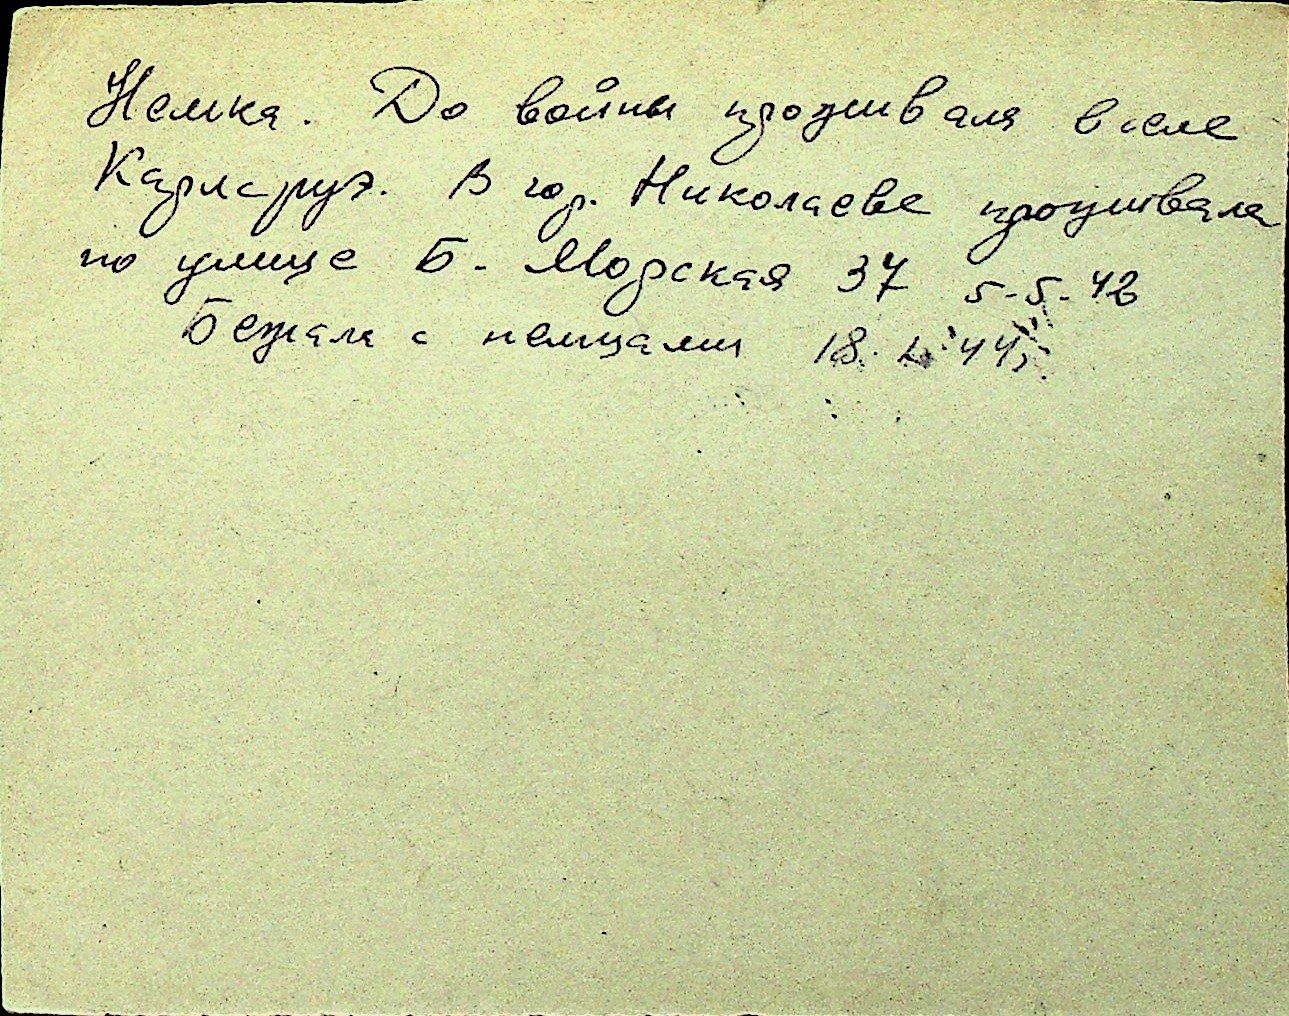 Немка. До войны проживала в селе
Карлсруэ. В гор. Николаеве проживала
по улице Б. Морская 37 5-5-42
Бежала с немцами 18. 44